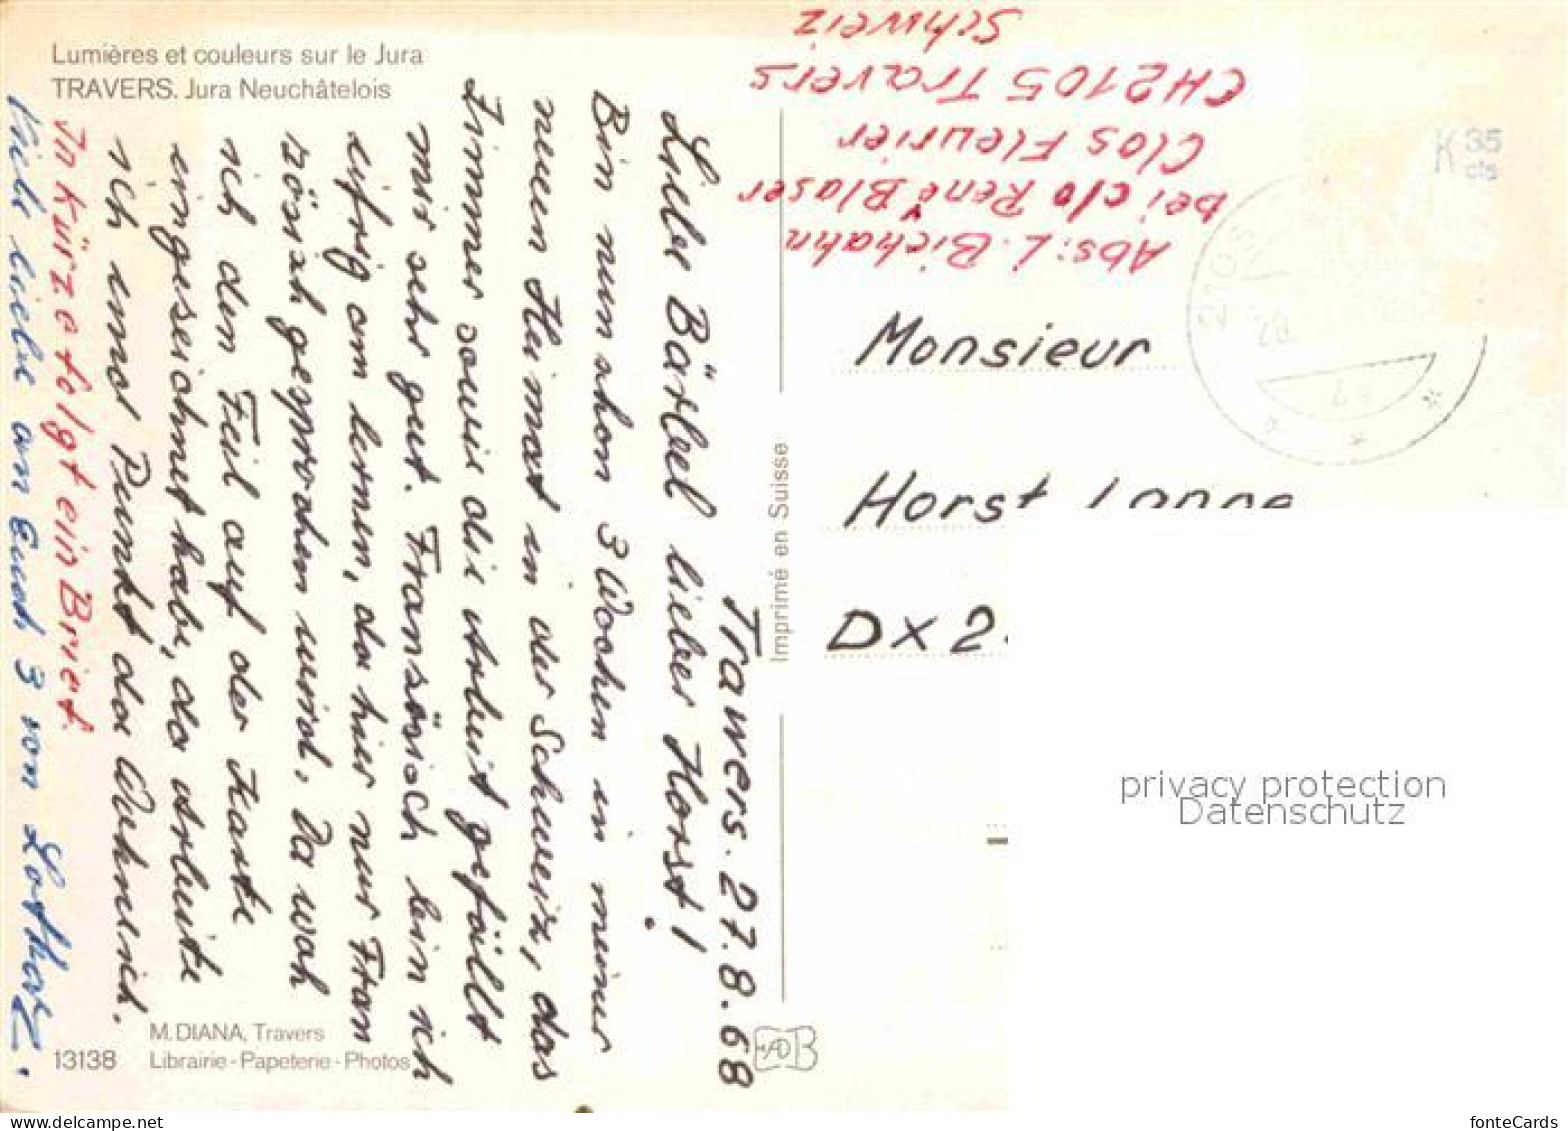 Lumières et couleurs sur le Jura
TRAVERS. Jura Neuchâtelois
Travers. 27.8.68
Liebe Bärbel lieber Horst!
Bin nun schon 3 Wochen in meiner
neuen Heimat in der Schweiz, das
Zimmer sowie die Arbeit gefällt
mir sehr gut. Französisch bin ich
eifrig am lernen, da hier nur Fran
zösich gesprochen wird. Da wo
ich den Feil auf der Karte
eingezeichnet habe, da arbeite
ich und Punkt da wohne ich.
In kürze folgt ein Brief.
Viele Liebe an Euch 3 von Lothar.
M. DIANA, Travers
13138 Librairie - Papeterie - Photos
Imprimé en Suisse
Abs: L. Bichahn
bei c/o René Blaser
Clos Fleurier
CH2105 Travers
Schweiz
K 35
cts
2105
Monsieur
Horst
DX 2
privacy protection
Datenschutz
fonteCards